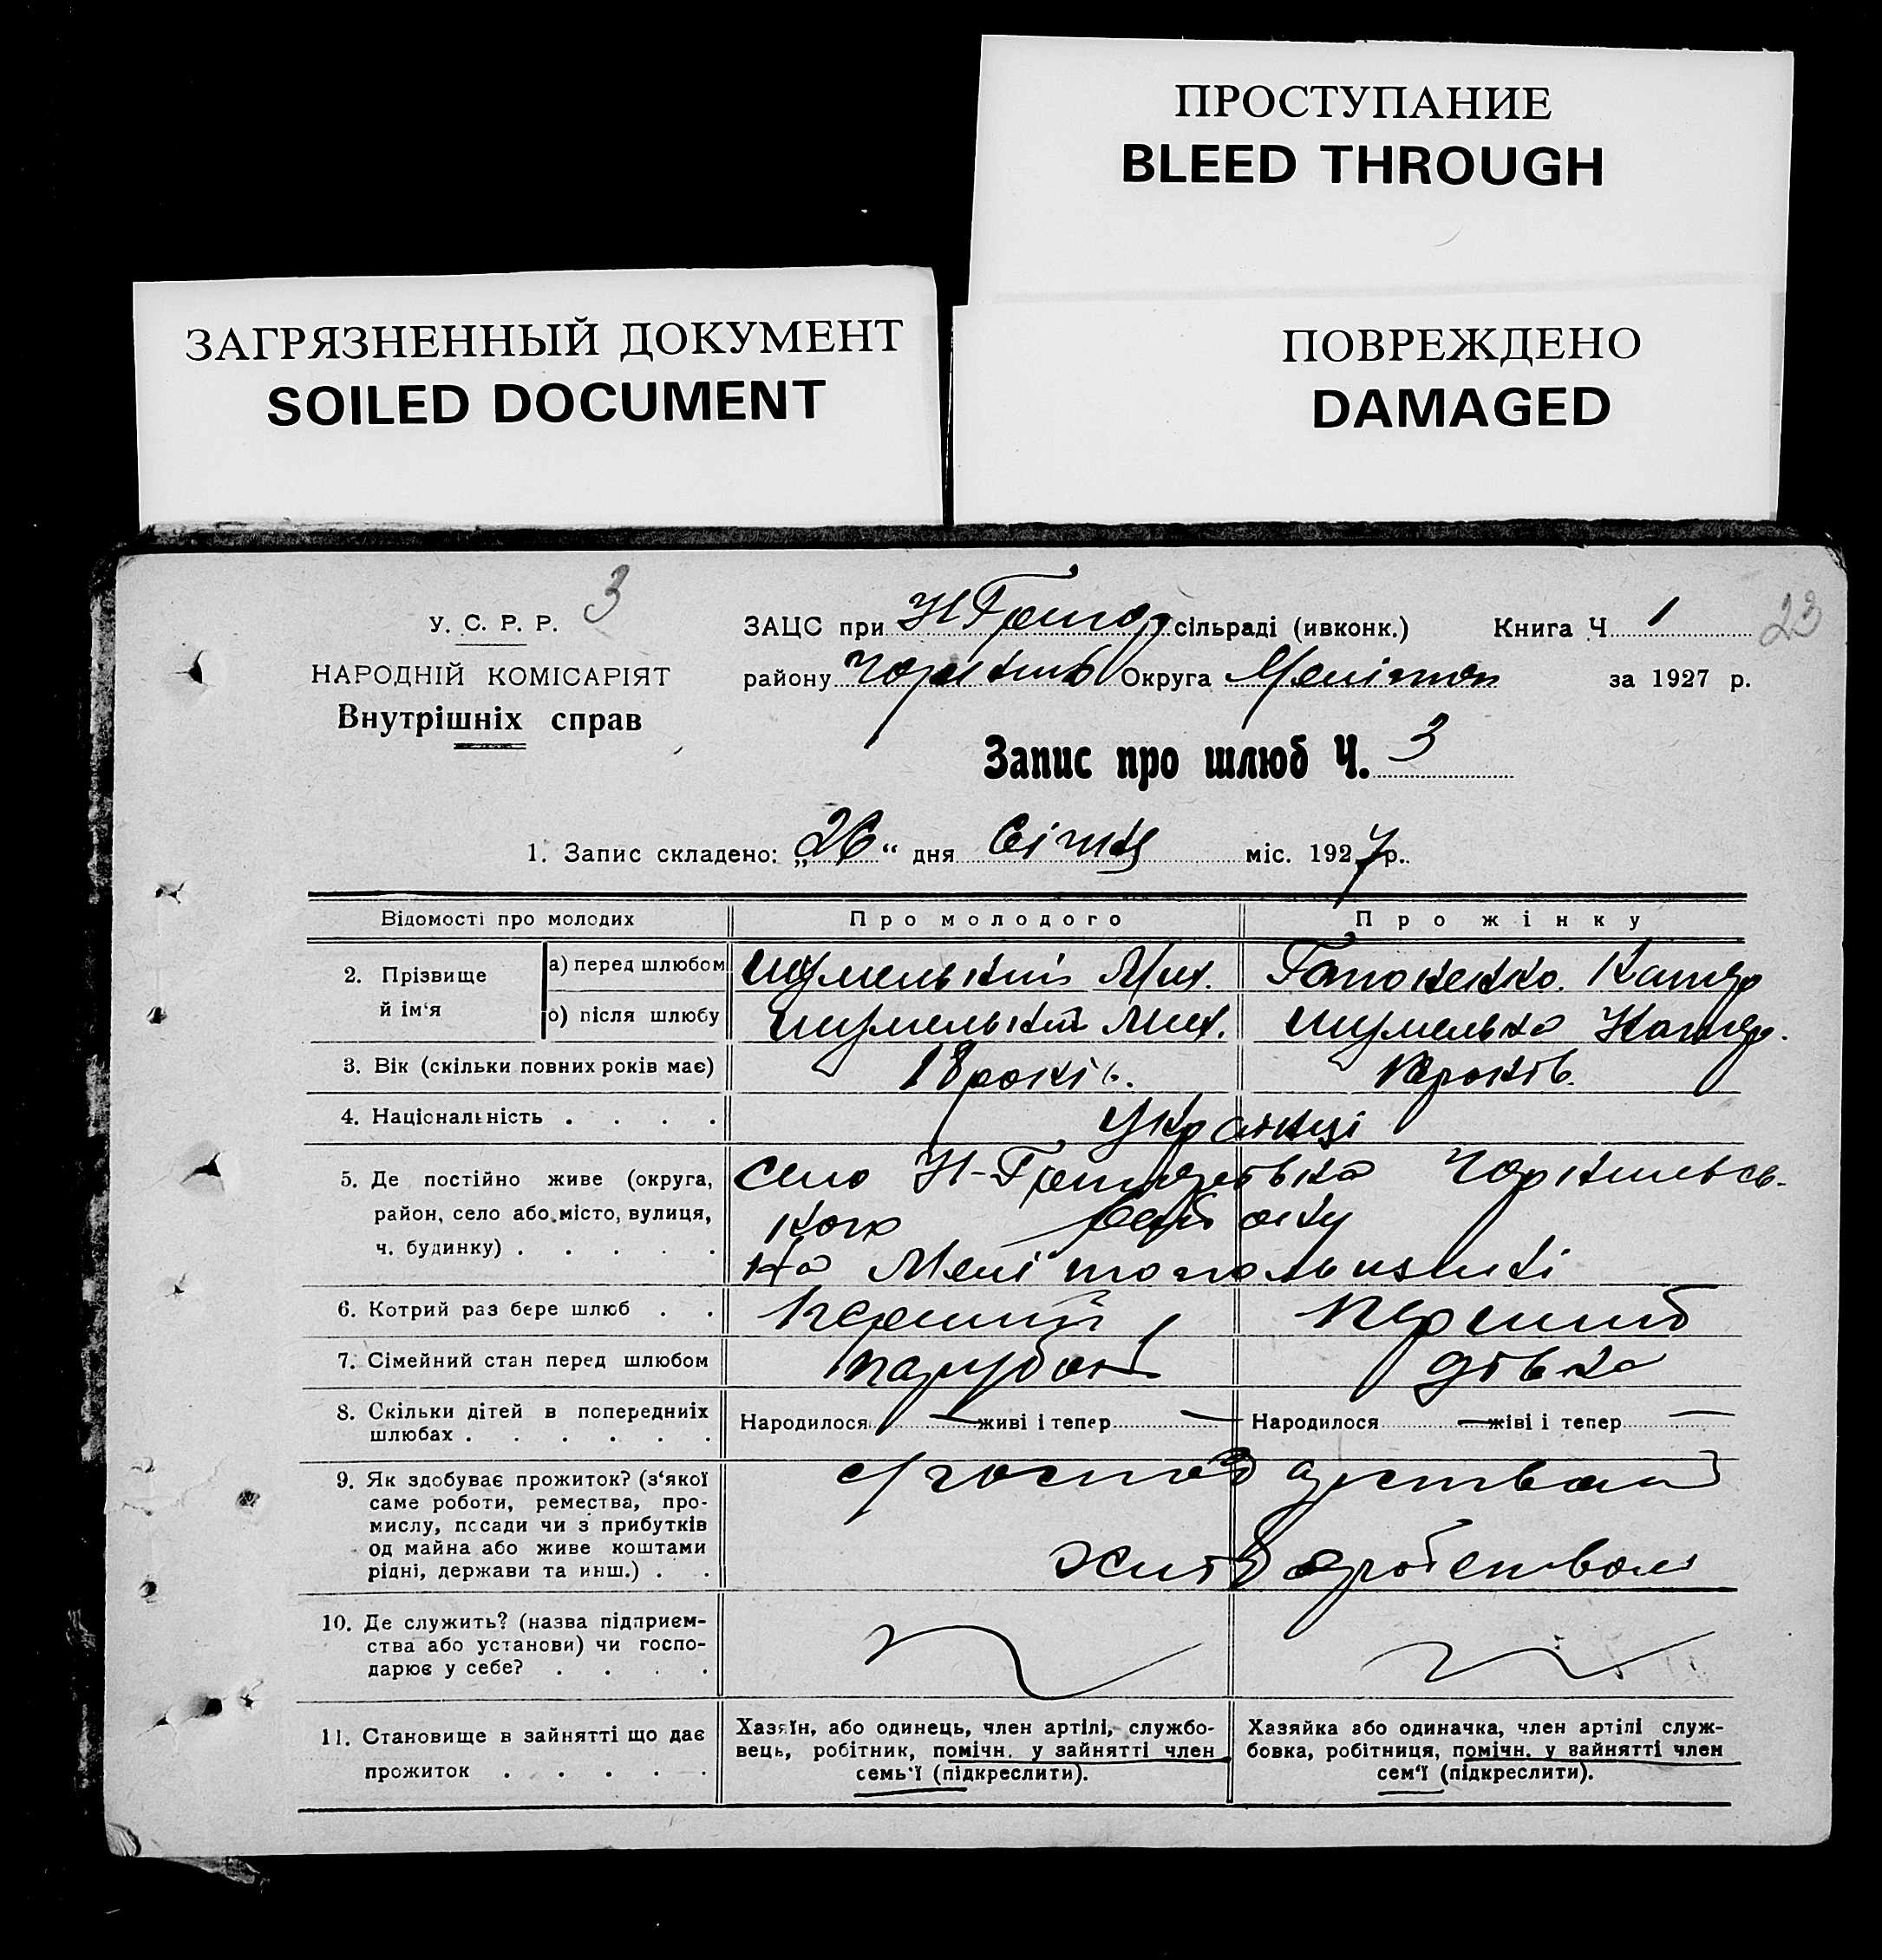 ПРОСТУПАНИЕ
BLEED THROUGH
ЗАГРЯЗНЕННЫЙ ДОКУМЕНТ
SOILED DOCUMENT
ПОВРЕЖДЕНО
DAMAGED
3
23
У. С. Р. Р.
НАРОДНІЙ КОМІСАРІЯТ
Внутрішніх справ
ЗАЦС при сільраді (ивконк.) Книга Ч 1
району Округа за 1927 р.
Запис про шлюб Ч. 3
1. Запис складено: „26“ дня Січня міс. 1927 р.
Відомості про молодих Про молодого Про жінку
2. Прізвище й ім'я а) перед шлюбом Шумельский Мих.
о) після шлюбу Шумельский Мих.
3. Вік (скільки повних років має) 18 років. років.
4. Національність . . . . Українці
5. Де постійно живе (округа, село
район, село або місто, вулиця, кого району
ч. будинку) . . . . . на Мелітопольщині
6. Котрий раз бере шлюб . . Перший Перший
7. Сімейний стан перед шлюбом парубок дівка
8. Скільки дітей в попередниіх Народилося — живі і тепер — Народилося — жіві і тепер —
шлюбах . . . . . .
9. Як здобуває прожиток? (з'якої
саме роботи, ремества, про-
мислу, посади чи з прибутків
од майна або живе коштами
рідні, держави та инш.) . .
10. Де служить? (назва підприєм-
ства або установи) чи госпо-
дарює у себе? . . . .
11. Становище в зайнятті що дає
прожиток . . . . .
Хазяїн, або одинець, член артілі, службо-
вець, робітник, помічн. у зайнятті член
семь'ї (підкреслити).
Хазяйка або одиначка, член артілі служ-
бовка, робітниця, помічн. у зайнятті член
сем'ї (підкреслити).